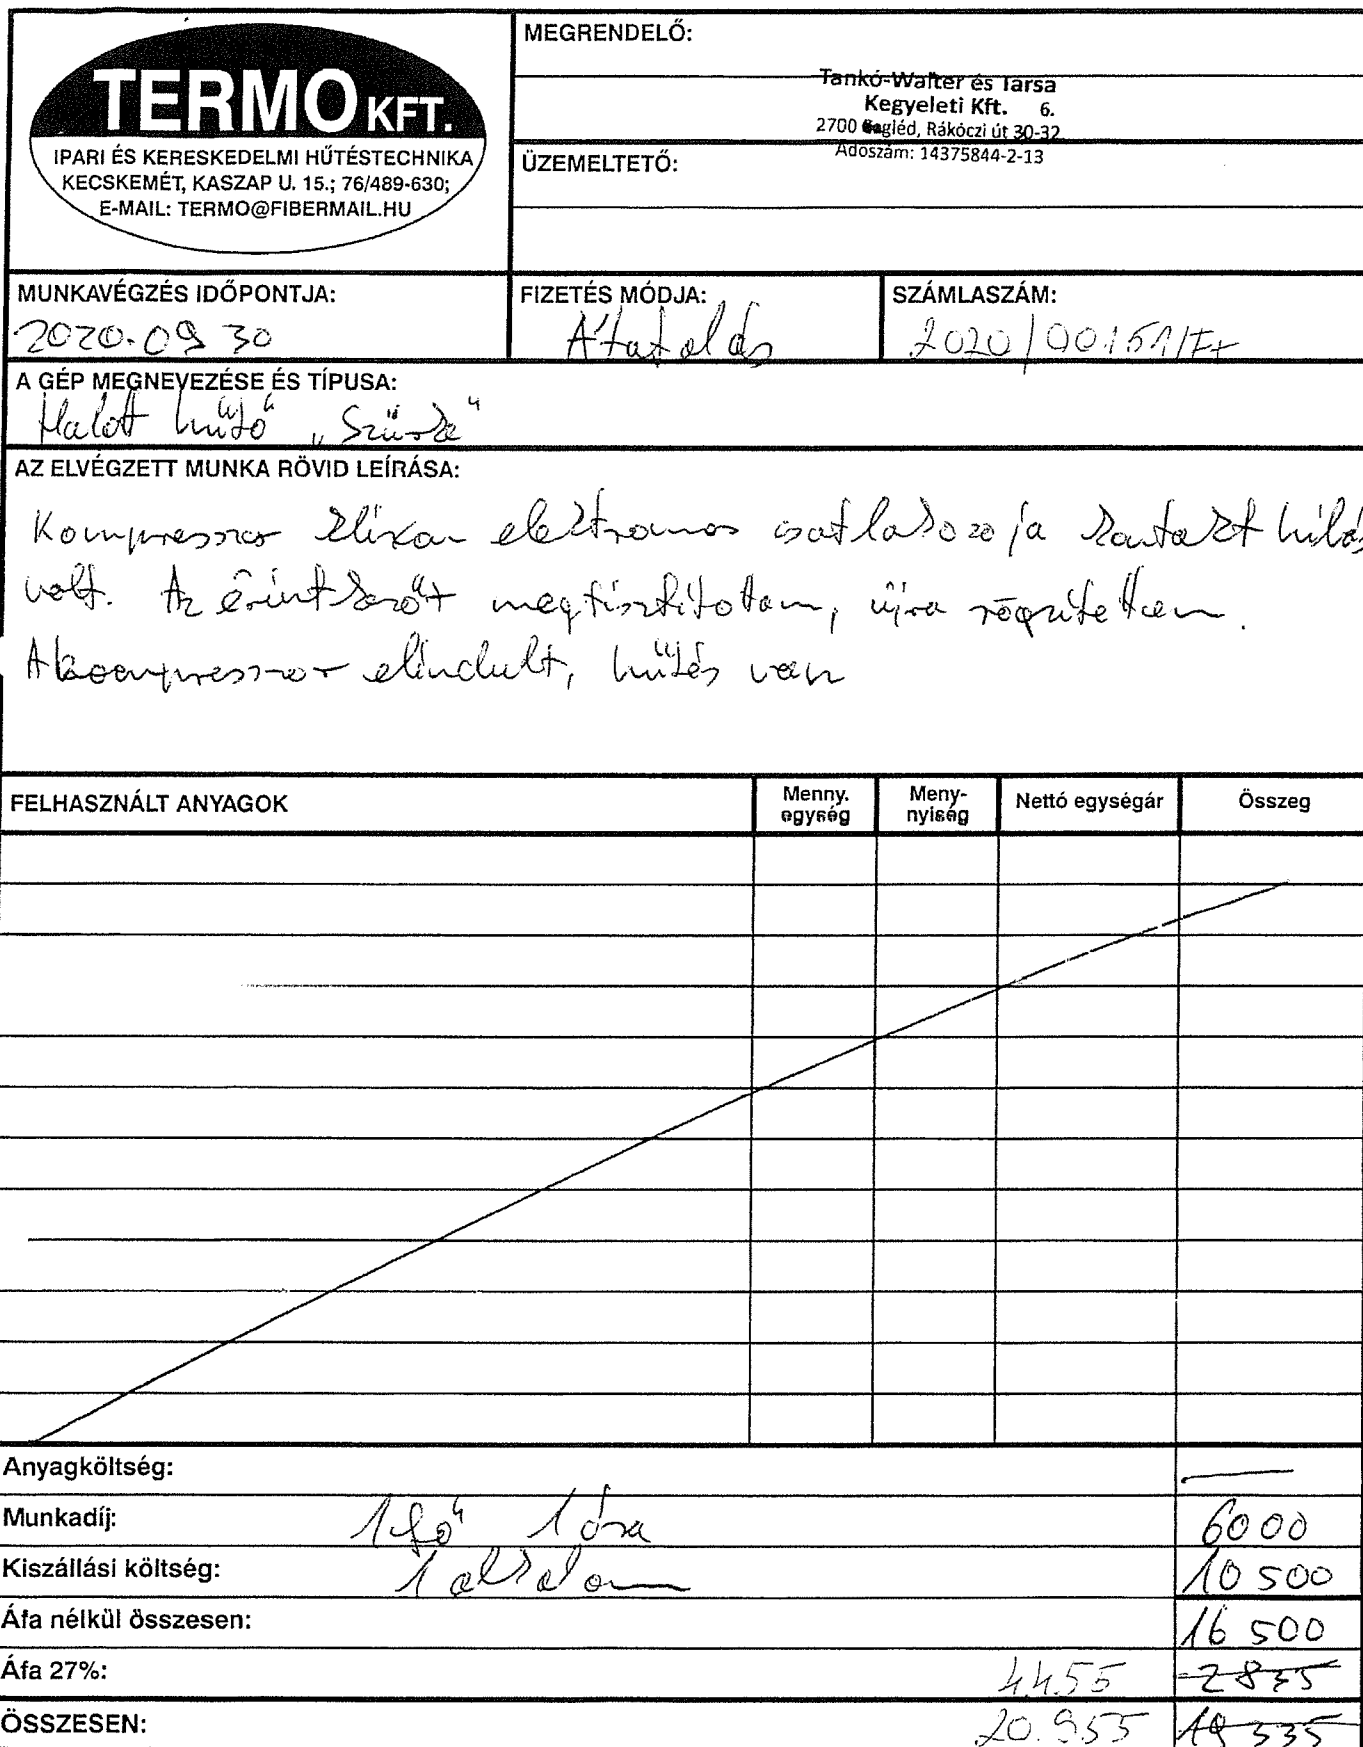 TERMO KFT.
IPARI ÉS KERESKEDELMI HŰTÉSTECHNIKA
KECSKEMÉT, KASZAP U. 15.; 76/489-630;
E-MAIL: TERMO@FIBERMAIL.HU
MEGRENDELŐ:
Tankó-Walter és Társa
Kegyeleti Kft. 6.
2700 Cegléd, Rákóczi út 30-32
Adószám: 14375844-2-13
ÜZEMELTETŐ:
MUNKAVÉGZÉS IDŐPONTJA:
2020.09 30
FIZETÉS MÓDJA:
Átutalás
SZÁMLASZÁM:
2020/00151/
A GÉP MEGNEVEZÉSE ÉS TÍPUSA:
Halott hűtő „Szürke"
AZ ELVÉGZETT MUNKA RÖVID LEÍRÁSA:
Kompresszor klixon elektromos csatlakozója kontakt hibás
volt. Az érintkezőt megtisztítottam, újra rögzítettem.
A kompresszor elindult, hűtés van
FELHASZNÁLT ANYAGOK
Menny. egység
Meny-nyiség
Nettó egységár
Összeg
Anyagköltség:
Munkadíj: 1 fő 1 óra 6000
Kiszállási költség: 1 alkalom 10 500
Áfa nélkül összesen: 16 500
Áfa 27%: 4.455 2835
ÖSSZESEN: 20.955 19 335